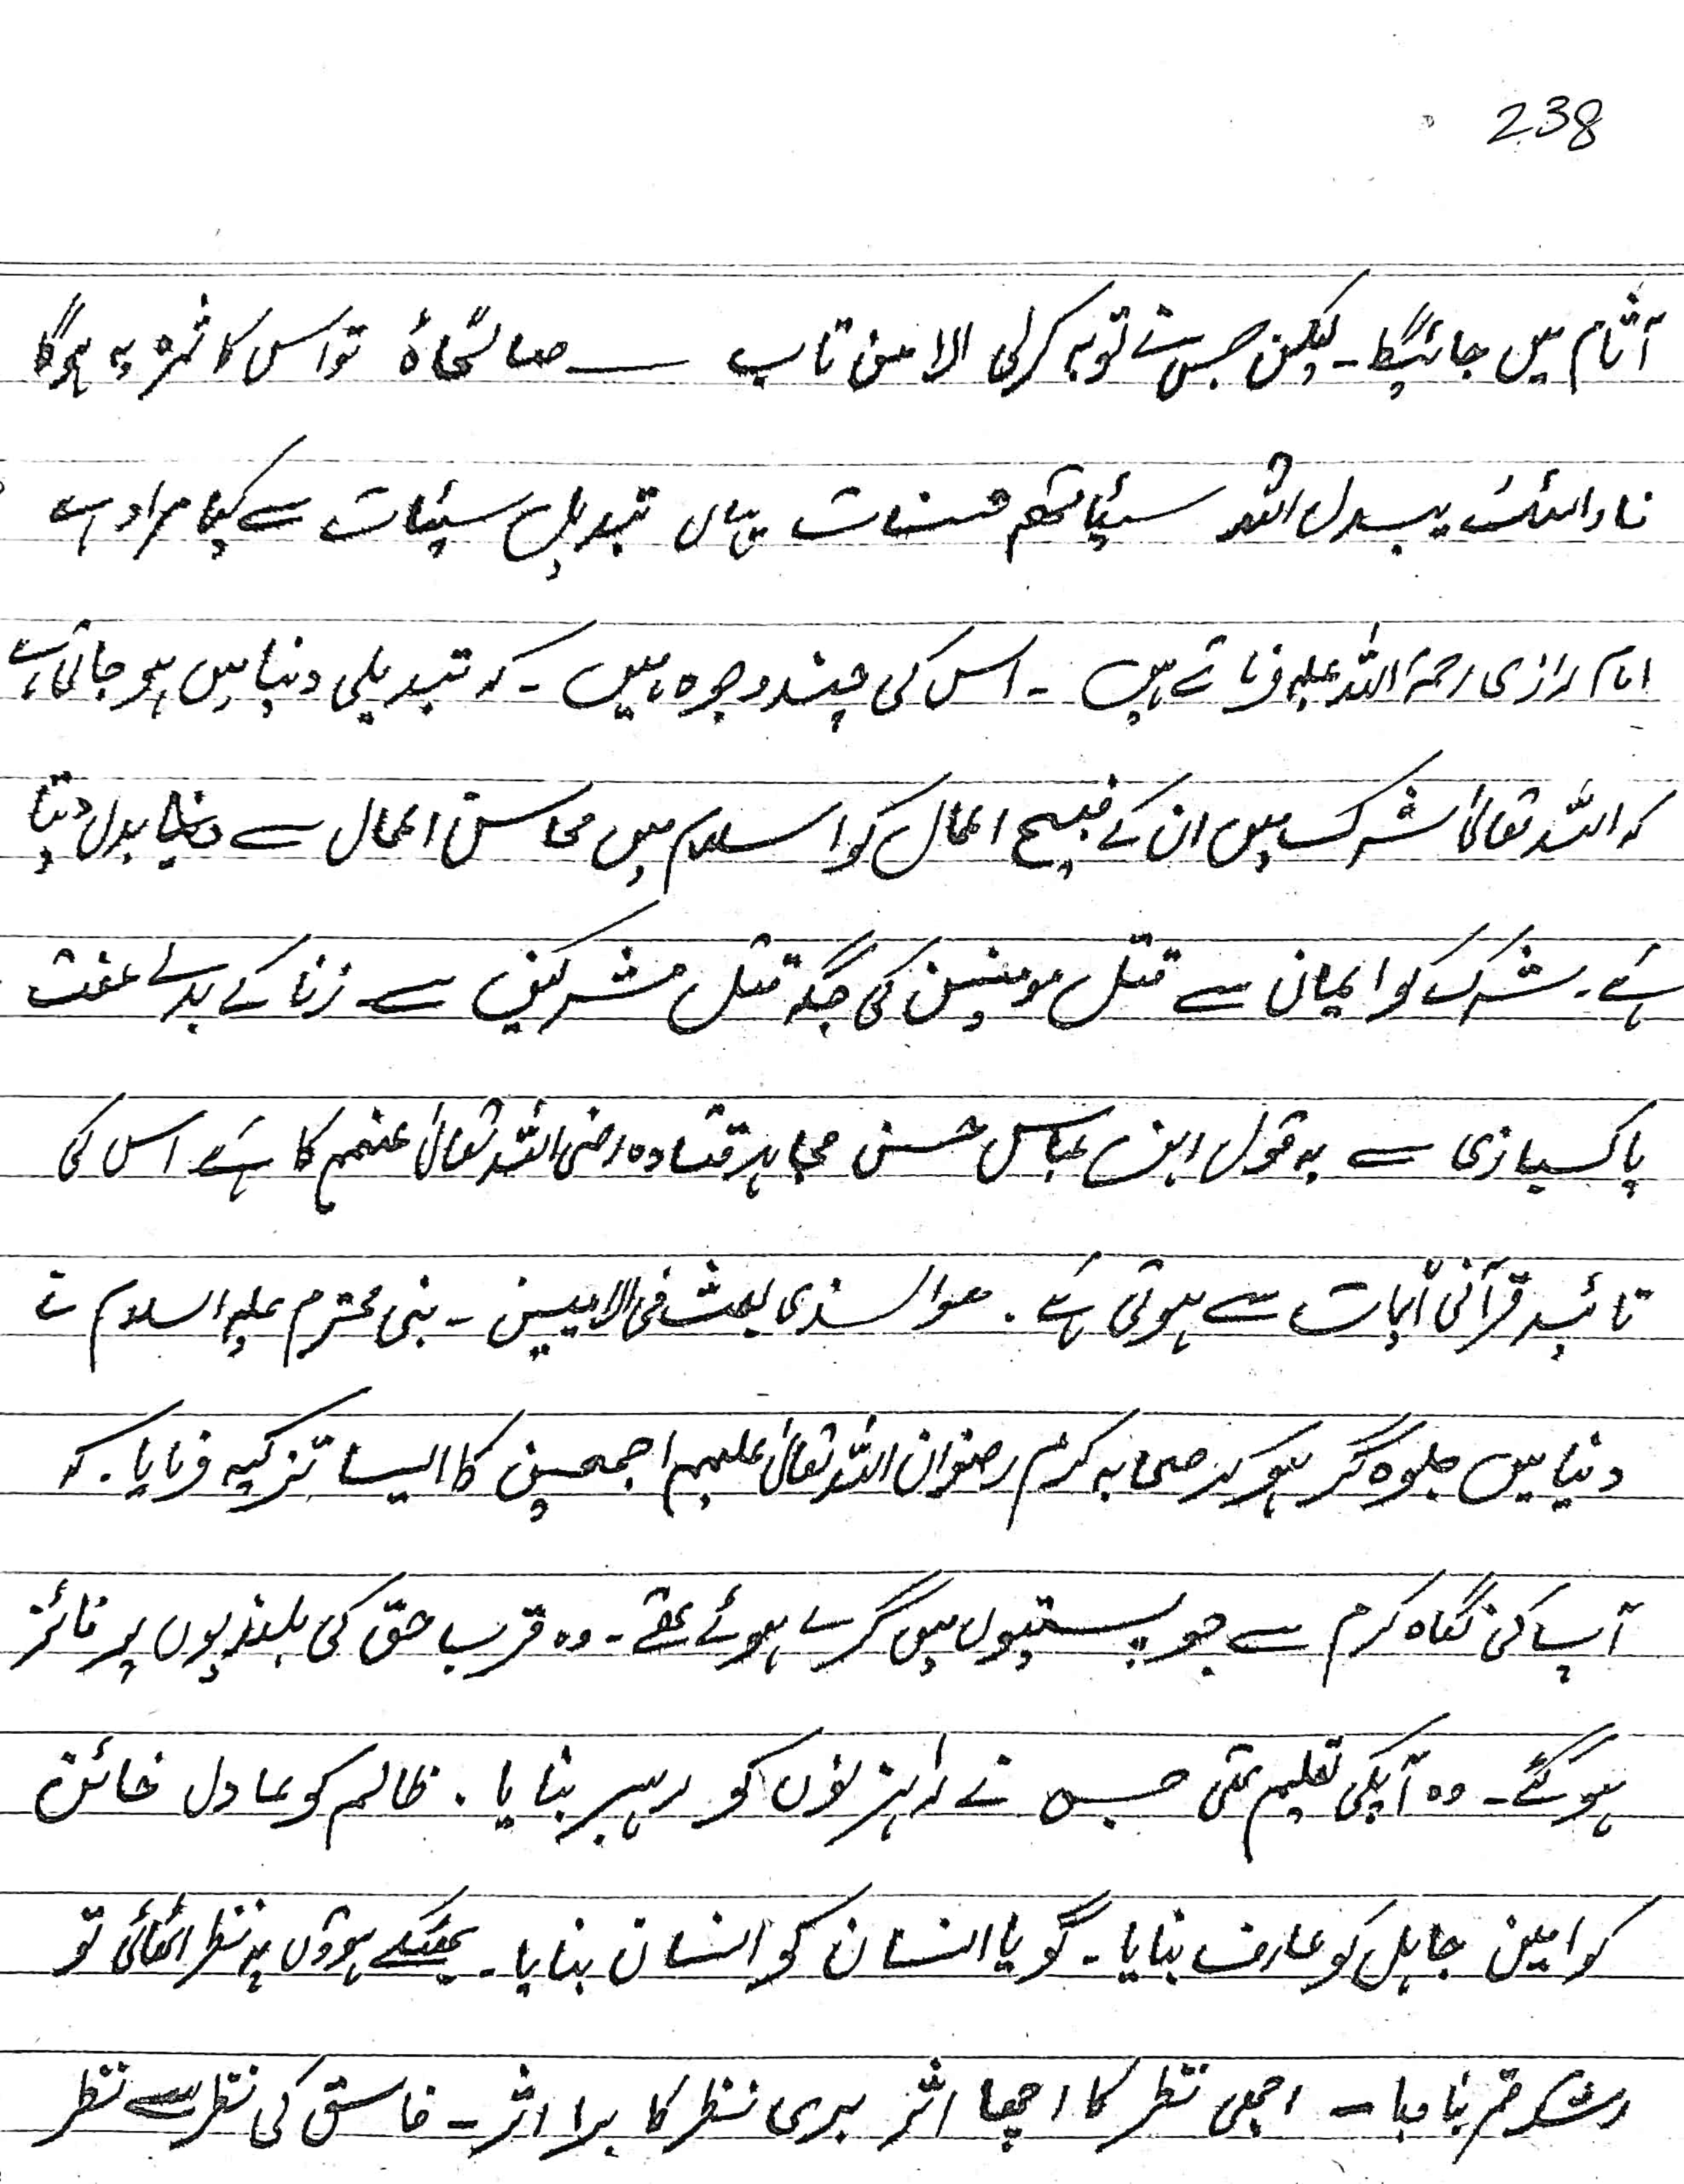 238
آثام میں جائیگا۔ لیکن جس نے توبہ کرلی الا من تاب ــــ صالحاً تو اس کا ثمرہ یہ ہوگا
فاولئک یبدل اللہ سیئاتھم حسنات یہاں تبدیل سیئات سے کیا مراد ہے
امام رازی رحمۃ اللہ علیہ فرماتے ہیں ۔ اس کی چند وجوہ ہیں ۔ کہ تبدیلی دنیا میں ہو جاتی ہے
کہ اللہ تعالیٰ شرک میں ان کے قبیح اعمال کو اسلام میں محاسن اعمال سے بدل دیتا
ہے۔ شرک کو ایمان سے قتل مومنین کی جگہ قتل مشرکین سے زنا کے بدلے عفت
پاکبازی سے یہ قول ابن عباس حسن مجاہد قتادہ رضی اللہ تعالیٰ عنہم کا ہے اس کی
تائید قرآنی آیات سے ہوتی ہے ۔ ھوالذی بعث فی الامیین ۔ نبی محترم علیہ السلام نے
دنیا میں جلوہ گر ہو کر صحابہ کرام رضوان اللہ تعالیٰ علیہم اجمعین کا ایسا تزکیہ فرمایا۔ کہ
آپ کی نگاہ کرم سے جو پستیوں میں گرے ہوئے تھے ۔ وہ قرب حق کی بلندیوں پر فائز
ہوگئے ۔ وہ آپکی تعلیم تھی جس نے راہزنوں کو رہبر بنایا ۔ ظالم کو عادل خائن
کو امین جاہل کو عارف بنایا۔ گویا انسان کو انسان بنایا۔ بھٹکے ہوؤں پہ نظر اٹھائی تو
رشک قمر بنا دیا ــ اچھی نظر کا اچھا اثر بری نظر کا برا اثر ۔ فاسق کی نظر سے نظر